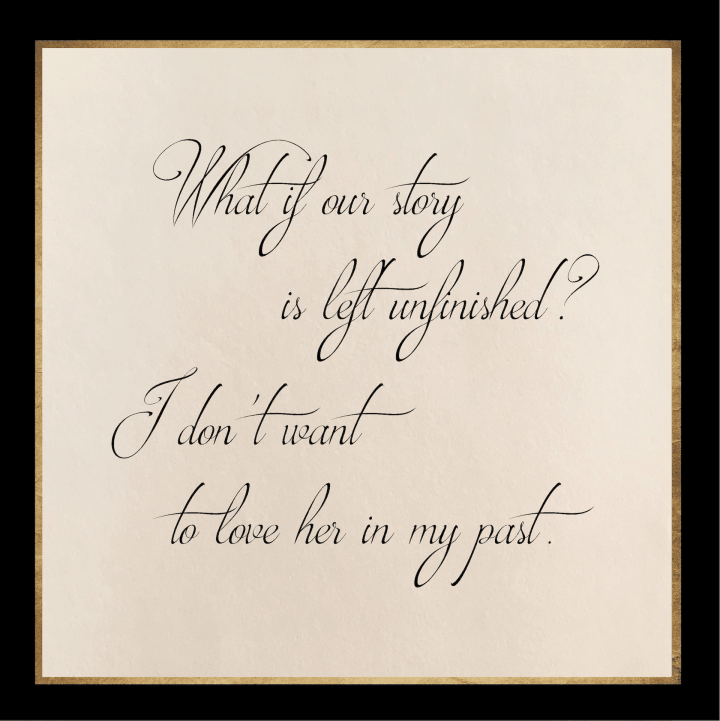 What if our story
is left unfinished?
I don't want
to love her in my past.